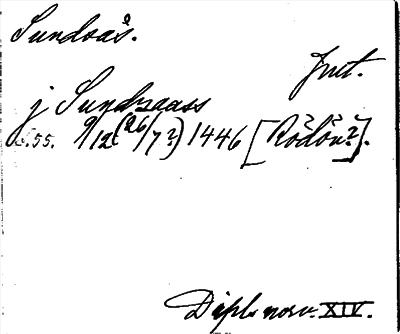 Sundsås.
Jmt.
j Sundzaass
s. 55. 9/12 (26/7 ?) 1446 [Rödön?].
Dipl. norv. XIV.